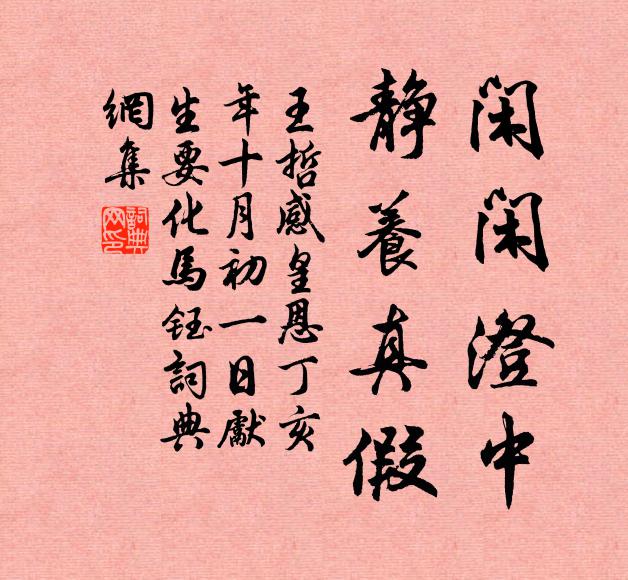 閑閑澄中
靜養真假
王哲感皇恩丁亥
年十月初一日獻
生要化馬鈺詞典
網集
詞典網印